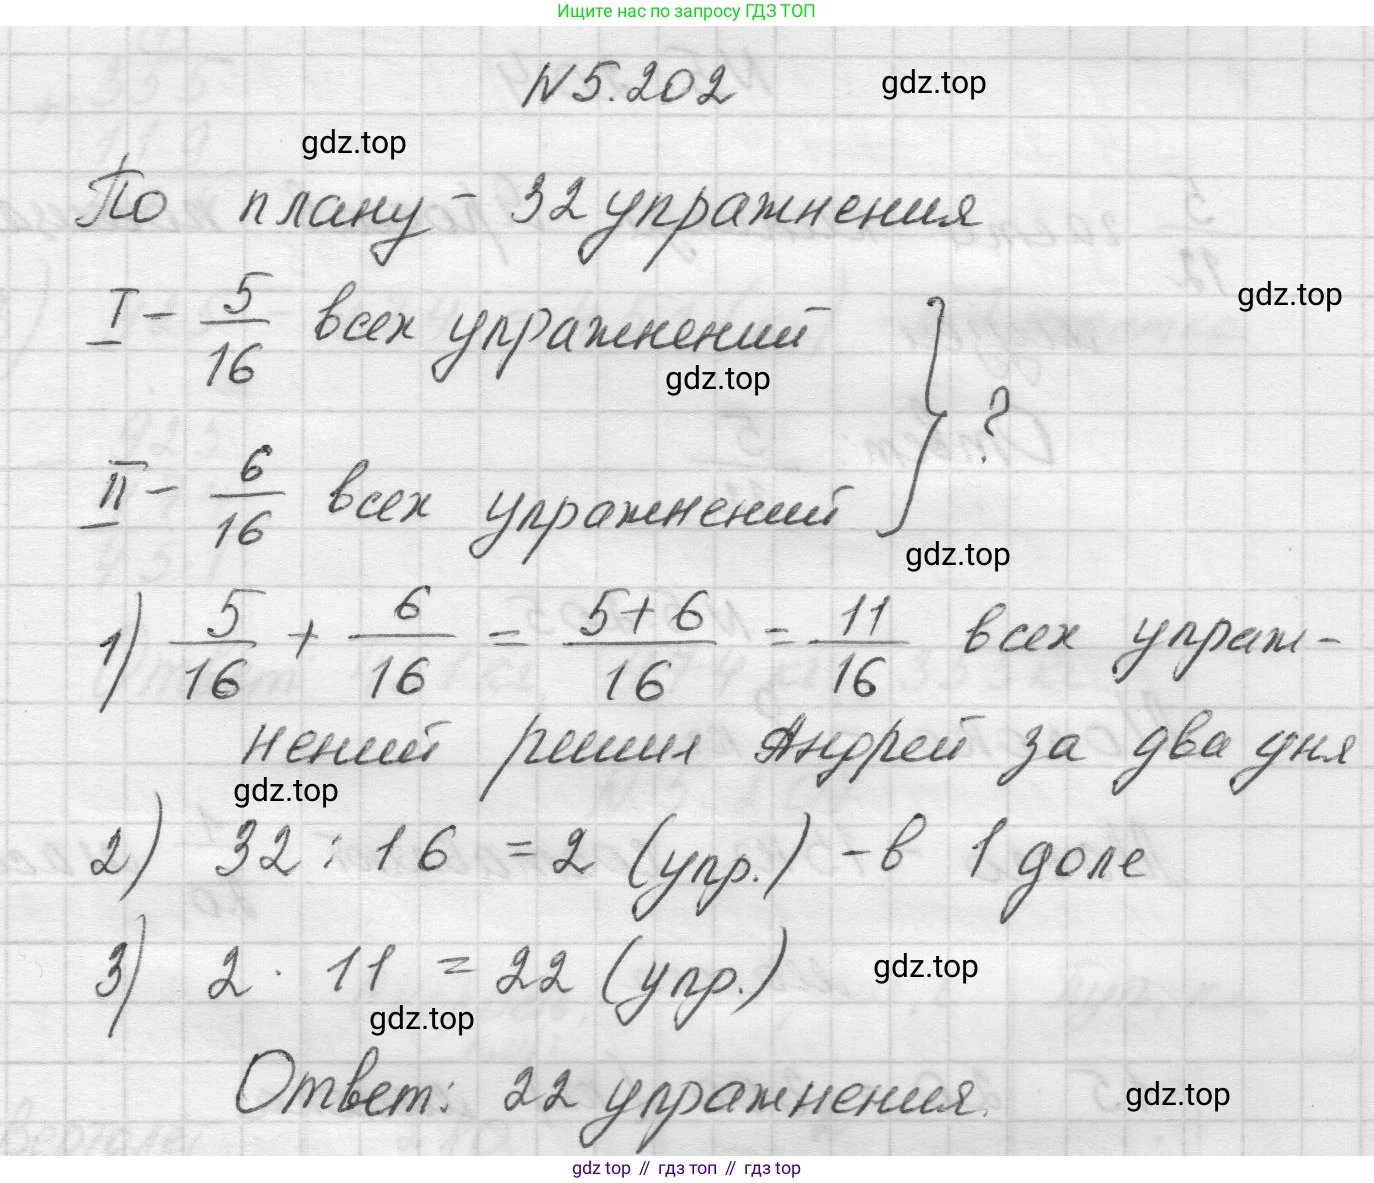 Ищите нас по запросу ГДЗ ТОП
N5.202
gdz.top
gdz.top
По плану - 32 упражнения
I - 5/16 всех упражнений
gdz.top
gdz.top
} ?
II - 6/16 всех упражнений
gdz.top
1) 5/16 + 6/16 = 5+6/16 = 11/16 всех упраж-
нений решил Андрей за два дня
gdz.top
2) 32 : 16 = 2 (упр.) - в 1 доле
3) 2 · 11 = 22 (упр.)
gdz.top
gdz.top
Ответ: 22 упражнения.
gdz.top
gdz top // гдз топ // gdz top